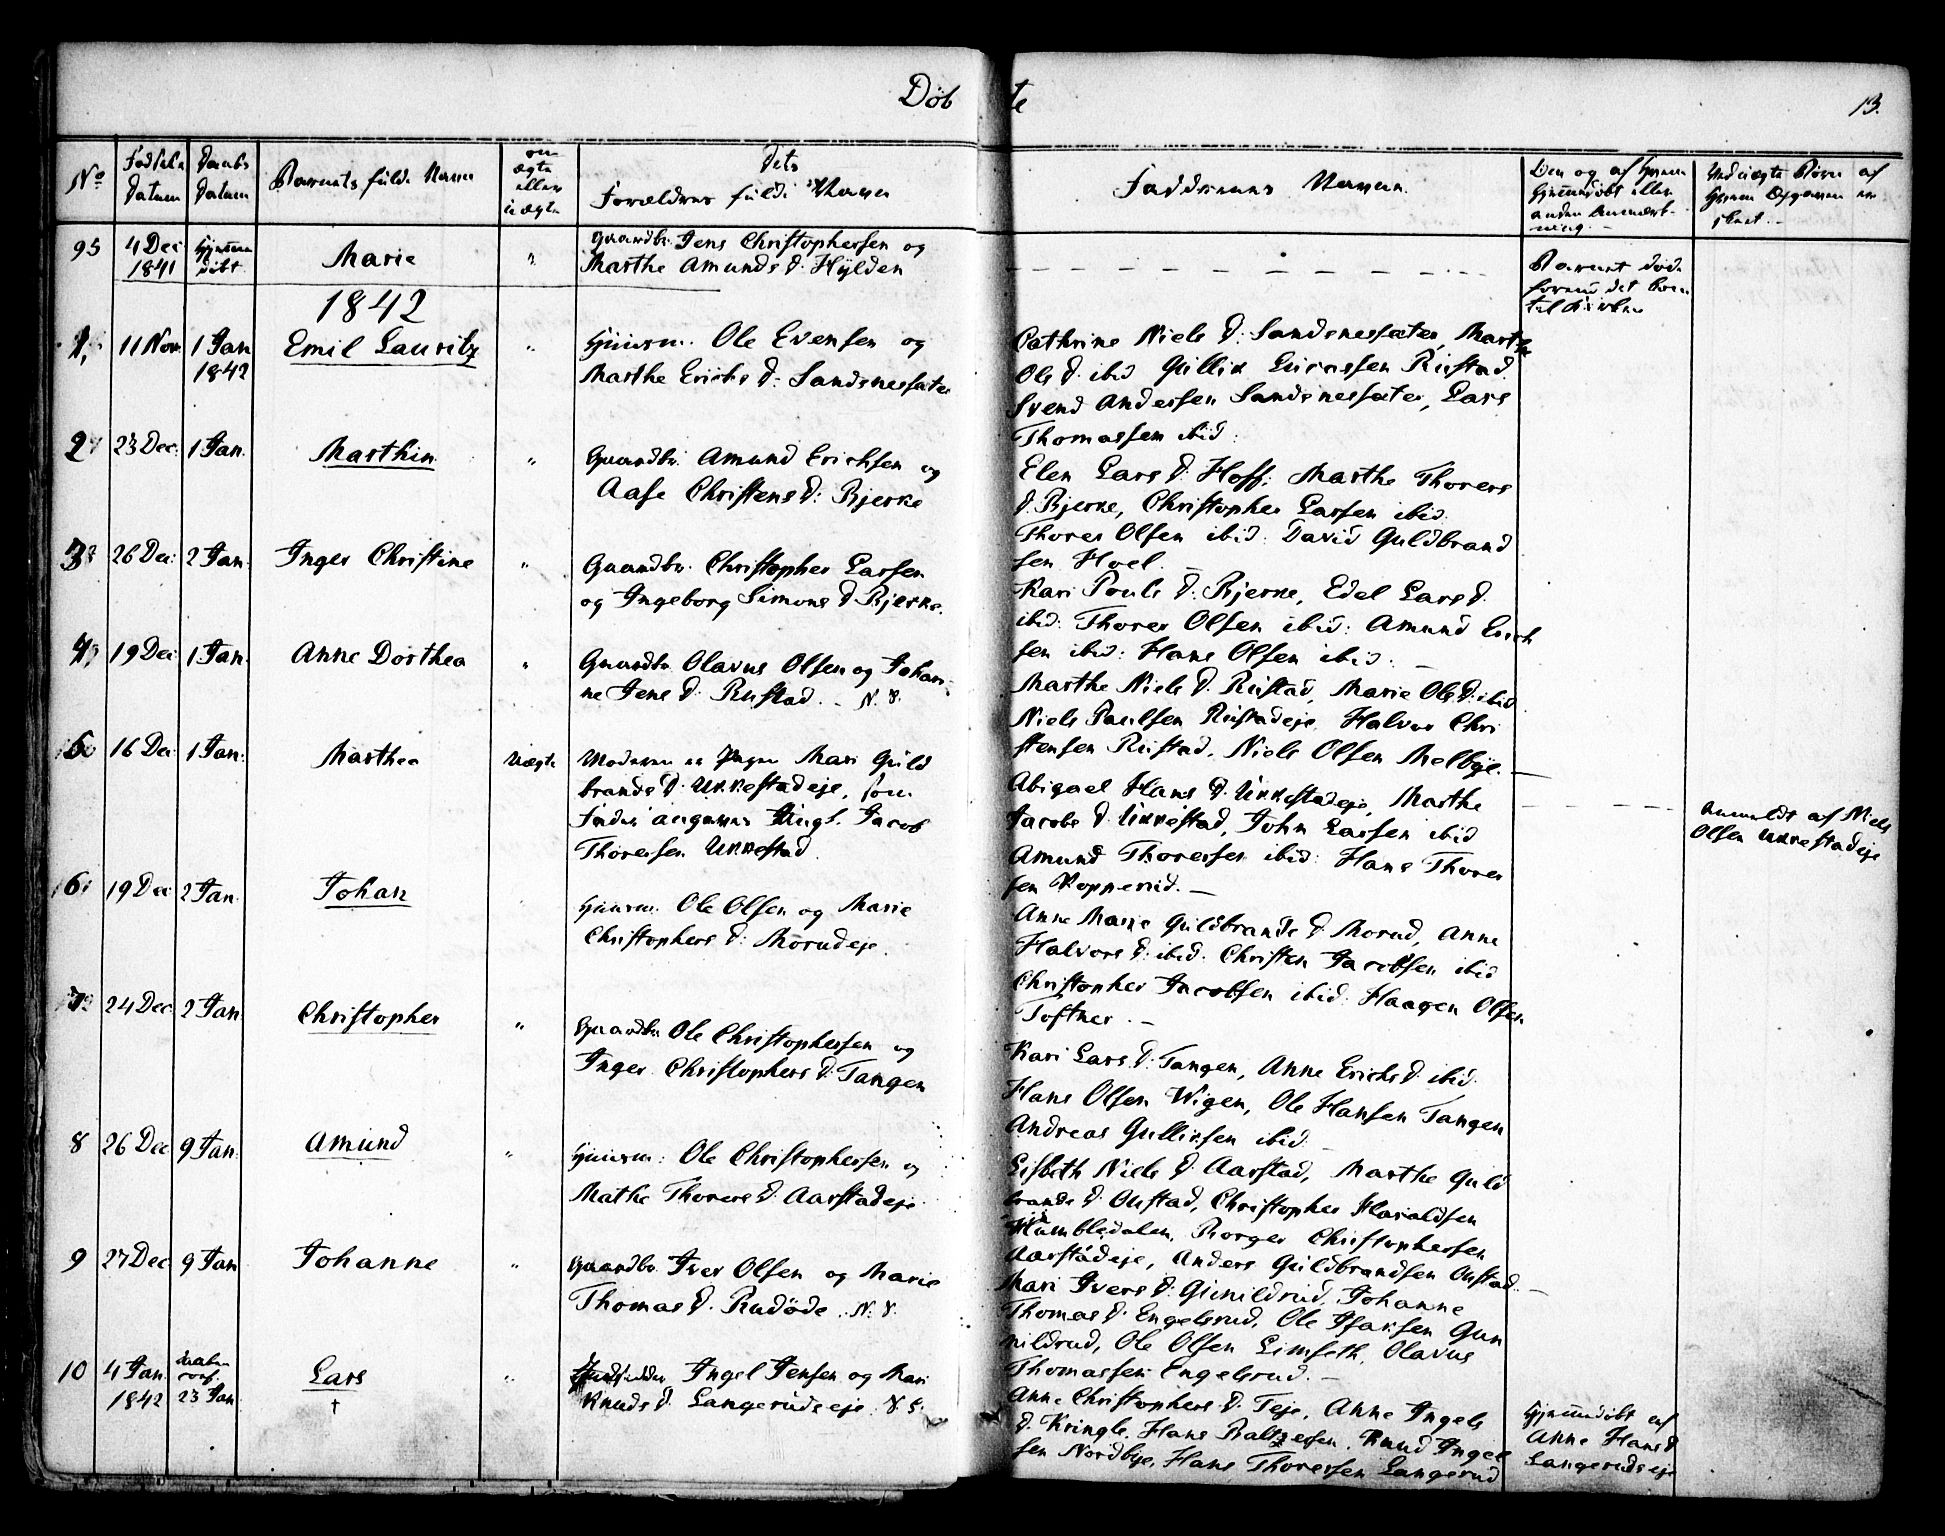 Døbte
13.
No
Fødsels Datum
Daabs Datum
Barnets fulde Navn
om ægte eller uægte
Dets Forældres fulde Navn
Faddernes Navne.
Om og af hvem hjemmedøbt eller anden Anmærkning.
Ved uægte Børn af hvem Opgaven er skeet.
95
4 Dec 1841
Hjemmedøbt
Marie
"
Gaardbr. Jens Christophersen og
Marthe Amunds D. Hylden
Barnet døde
forend det kom
til Kirken
1842
1,
11 Nov
1 Jan 1842
Emil Lauritz
"
Huusm. Ole Evensen og
Marthe Erichs D: Sandsnessæter
Cathrine Niels D: Sandsnessæter, Marthe
Ols D. ibid Gullik Lucassen Rustad
Svend Andersen Sandsnessæter, Lars
Thomassen ibid:
2
23 Dec.
1 Jan.
Marthin
"
Gaardbr. Amund Erichsen og
Aase Christens D: Bjerke
Elen Lars D. Hoff: Marthe Thorers
D. Bjerke, Christopher Larsen ibid.
Thorer Olsen ibid: David Guldbrand
sen Hoel. —
3
26 Dec.
2 Jan.
Inger Christine
"
Gaardbr. Christopher Larsen
og Ingeborg Simons D. Bjerke.
Kari Pouls D. Bjerke, Edel Lars D.
ibid: Thorer Olsen ibid: Amund Erich
sen ibid: Hans Olsen ibid. —
4
19 Dec.
1 Jan.
Anne Dorthea
"
Gaardbr. Olavus Olsen og Johan-
ne Jens D. Rustad. - N. S.
Marthe Niels D. Rustad, Marie Ols D. ibid
Niels Paulsen Rustadeje, Halvor Chri
stensen Rustad, Niels Olsen Melbye. —
5
16 Dec.
1 Jan.
Marthea
Uægte
Moderen er Pigen Mari Guld
brands D. Ukkestadeje, som
Fader angaves Ungk. Jacob
Thorersen Ukkestad.
Abigael Hans D. Ukkestadeje, Marthe
Jacobs D. Ukkestad, John Larsen ibid
Amund Thorersen ibid: Hans Thorer
sen Kopperud. —
Anmeldt af Niels
Olsen Ukkestadeje
6
19 Dec
2 Jan.
Johan
Huusm. Ole Olsen og Marie
Christophers D: Morudeje.
Anne Marie Guldbrands D. Morud, Anne
Halvors D: ibid. Christen Jacobsen ibid
Christopher Jacobsen ibid: Haagen Olsen
Toftner. —
7
24 Dec
2 Jan
Christopher
"
Gaardbr. Ole Christophersen og
Inger Christophers D. Tangen
Kari Lars D. Tangen, Anne Erichs D. ibid.
Hans Olsen Wigen, Ole Hansen Tangen
Andreas Gulliksen ibid. —
8
26 Dec
9 Jan.
Amund
"
Huusm: Ole Christophersen og
Mathe Thorers D. Aarstadeje
Lisbeth Niels D. Aarstad, Marthe Guld
brands D. Onstad, Christopher Haraldsen
Humbledalen, Borger Christophersen
Aarstadeje, Anders Guldbrandsen Onstad. —
9
27 Dec
9 Jan
Johanne
"
Gaardbr. Iver Olsen og Marie
Thomas D. Rudöde. N. S.
Mari Ivers D. Gunildrud, Johanne
Thomas D. Engelsrud, Ole Isaksen Gun
nildrud, Ole Olsen Limseth, Olavus
Thomassen Engelsrud. —
10
4 Jan. 1842
23 Jan.
Lars
†
"
Ingel Jensen og Mari
Knuds D. Langerudseje. N. S.
Anne Christophers D. Teje, Anne Ingels
D. Kringle, Hans Baltzersen, Knud Ingel
sen Nordbye, Hans Thoresen Langerud
Hjemmedøbt af
Anne Hans D
Langerudseje